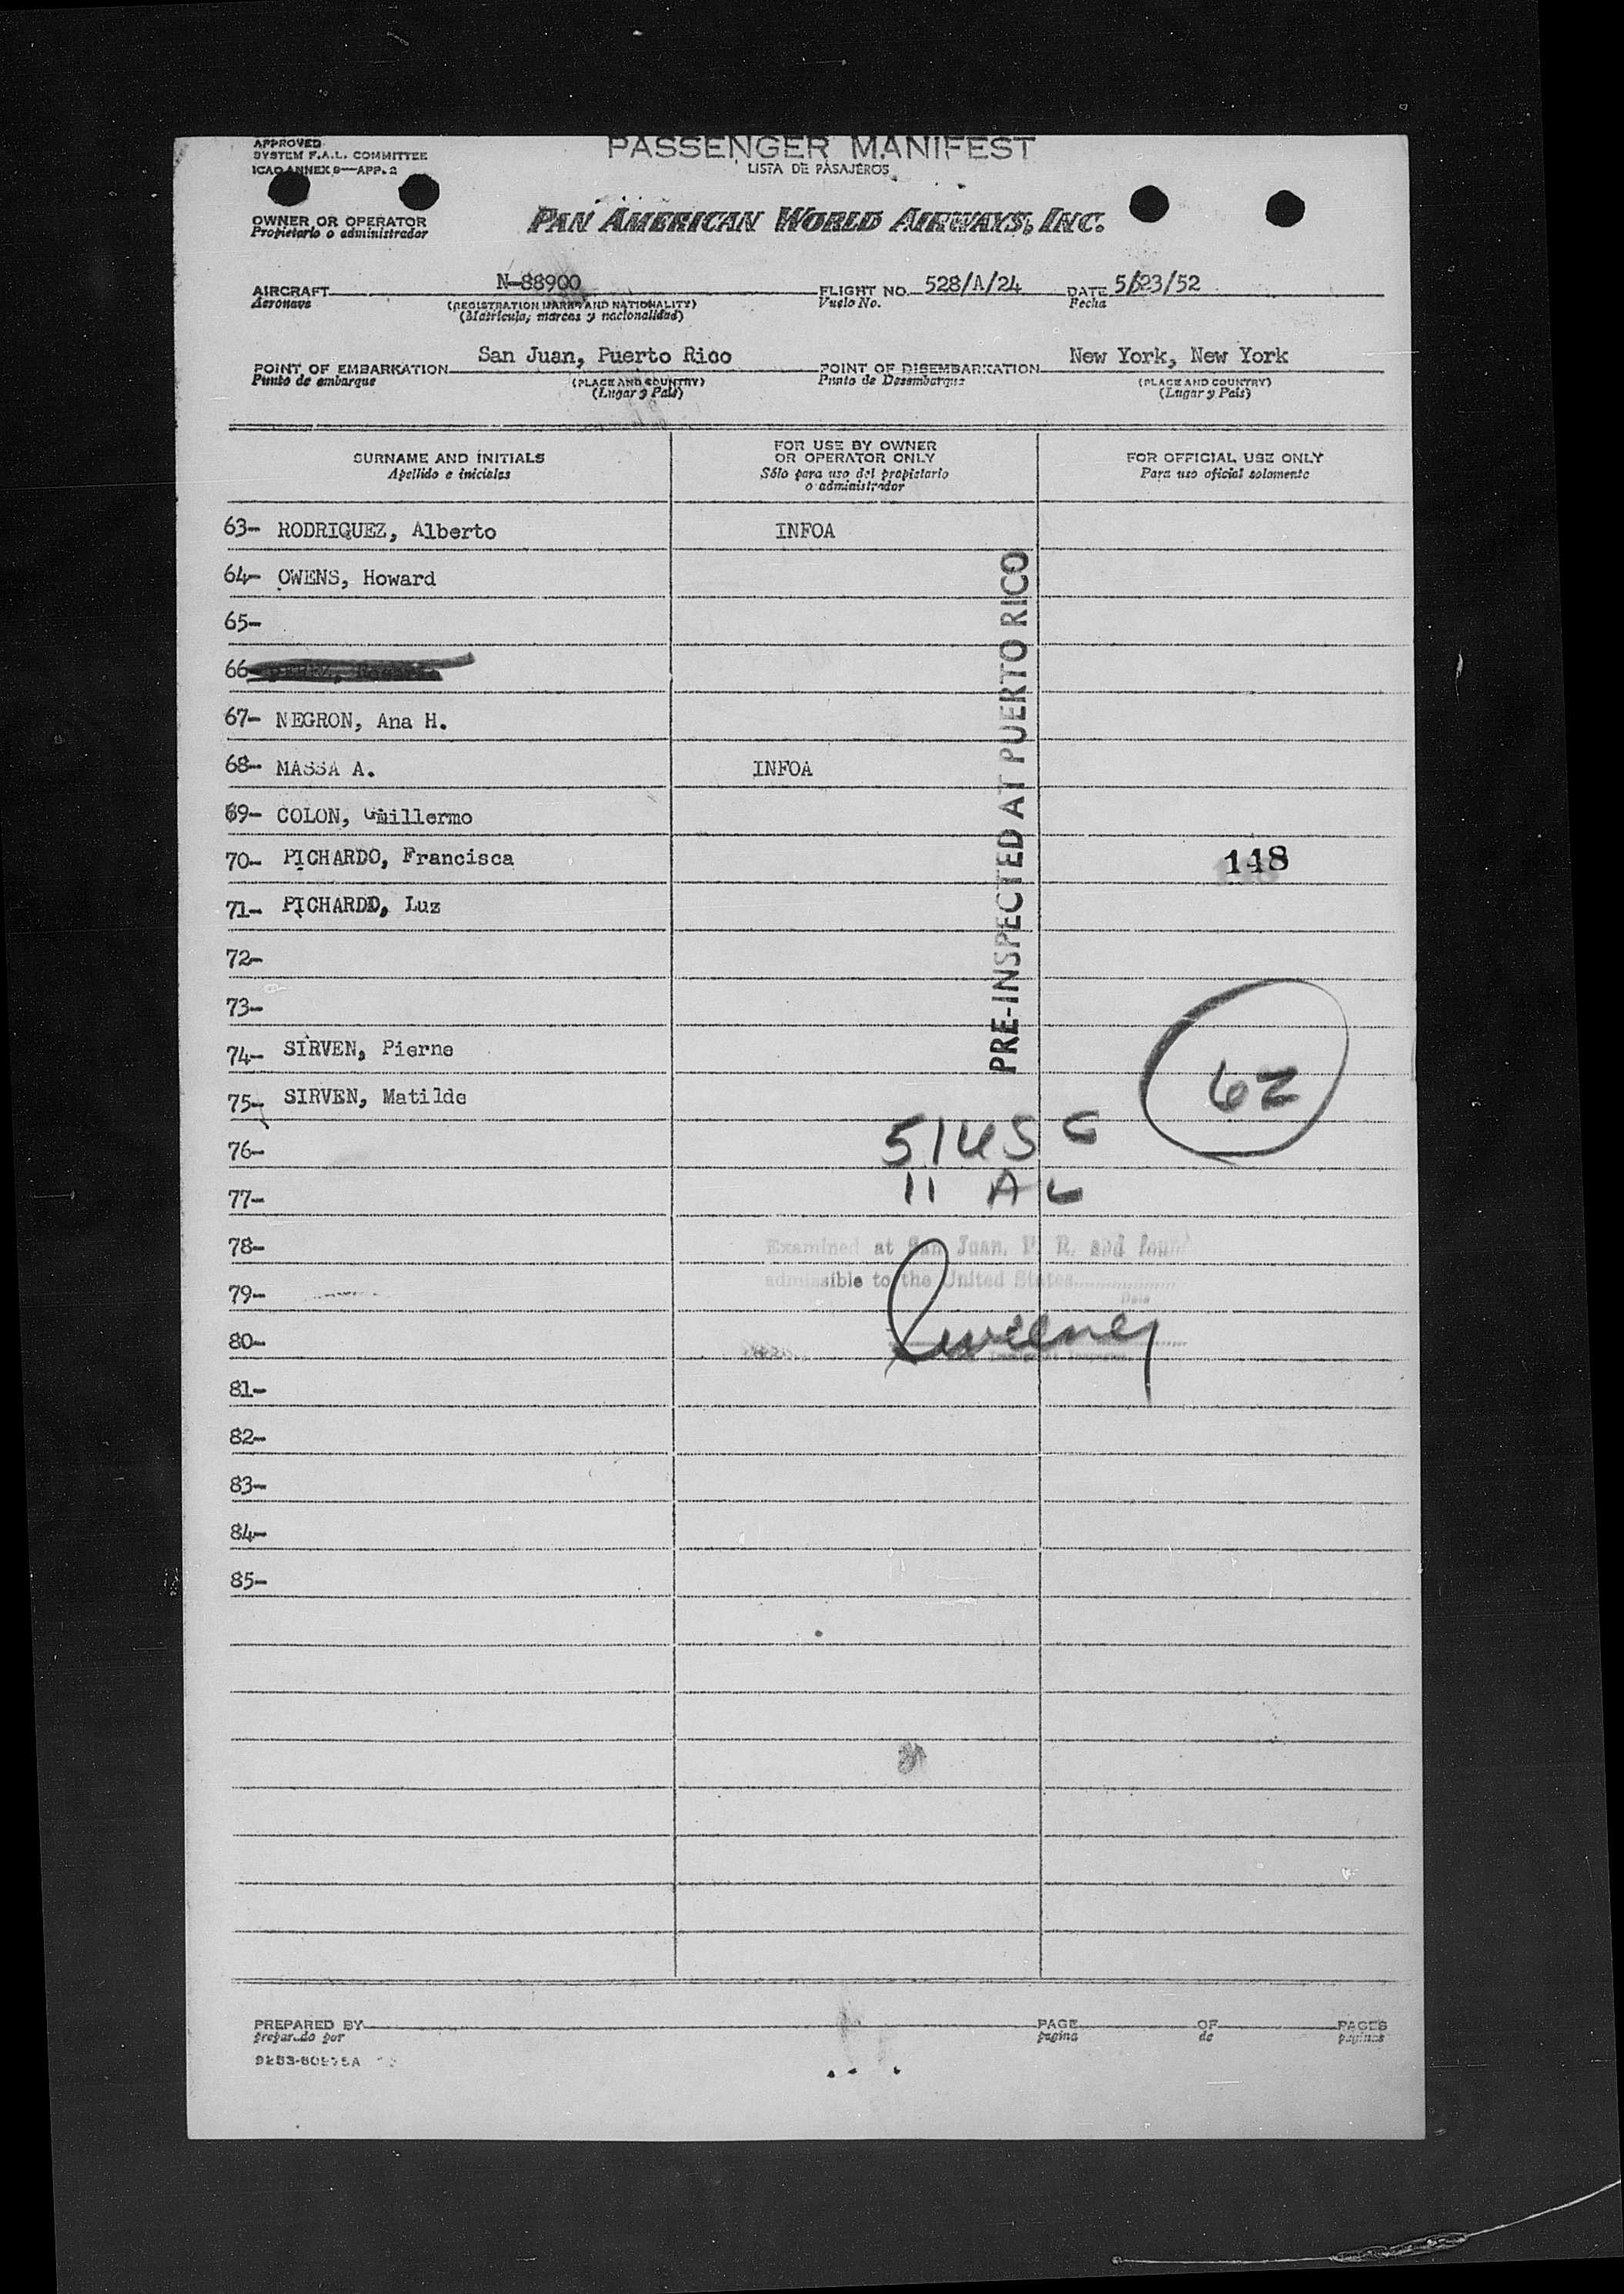 APPROVED
SYSTEM F.A.L. COMMITTEE
ICAO ANNEX 9—APP. 2
PASSENGER MANIFEST
LISTA DE PASAJEROS
OWNER OR OPERATOR
Propietario o administrador
PAN AMERICAN WORLD AIRWAYS, INC.
AIRCRAFT N-88900 FLIGHT NO. 528/A/24 DATE 5/23/52
Aeronave (REGISTRATION MARKS AND NATIONALITY) Vuelo No. Fecha
(Matrícula, marcas y nacionalidad)
POINT OF EMBARKATION San Juan, Puerto Rico POINT OF DISEMBARKATION New York, New York
Punto de embarque (PLACE AND COUNTRY) Punto de Desembarque (PLACE AND COUNTRY)
(Lugar y País) (Lugar y País)
SURNAME AND INITIALS
Apellido e iniciales
FOR USE BY OWNER
OR OPERATOR ONLY
Sólo para uso del propietario
o administrador
FOR OFFICIAL USE ONLY
Para uso oficial solamente
63- RODRIQUEZ, Alberto INFOA
64- OWENS, Howard
65-
66-
67- NEGRON, Ana H.
68- MASSA A. INFOA
69- COLON, Guillermo
70- PICHARDO, Francisca 148
71- PICHARDO, Luz
72-
73-
74- SIRVEN, Pierne
75- SIRVEN, Matilde
PRE-INSPECTED AT PUERTO RICO
62
76- 51 USC
77- 11 AL
78- Examined at San Juan, P. R. and found
79- admissible to the United States
Date
80- Sweeney
81-
82-
83-
84-
85-
PREPARED BY PAGE OF PAGES
preparado por página de páginas